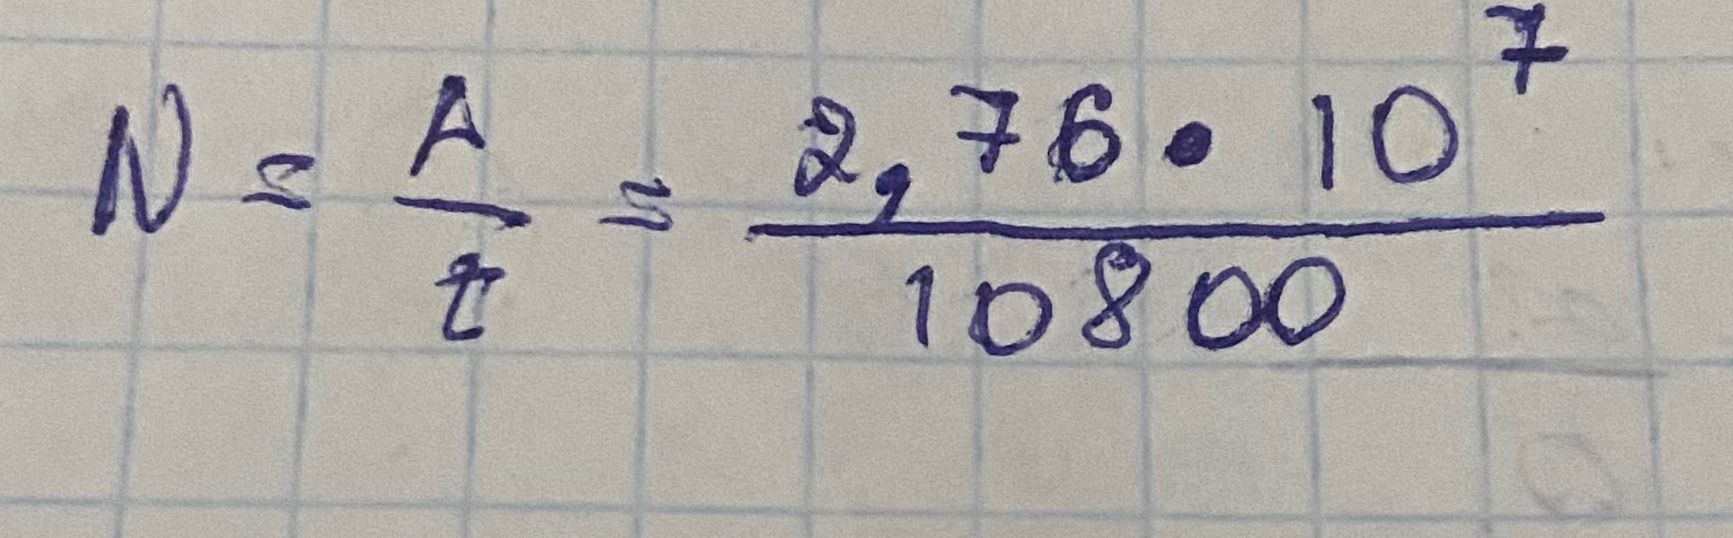 N = A/t = 2,76 • 10^7 / 10800